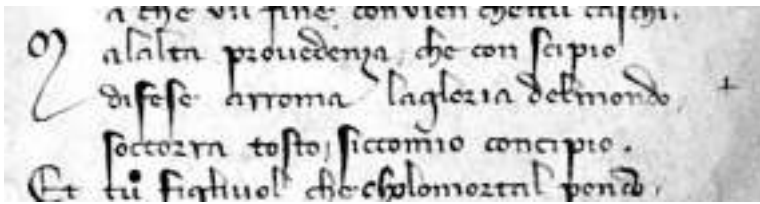 a che vil fine convien chettu caschi.
M alalta provedenza, che con scipio
difese arroma lagloria delmondo,
soccorra tosto, siccomio concipio.
Et tu figluol che